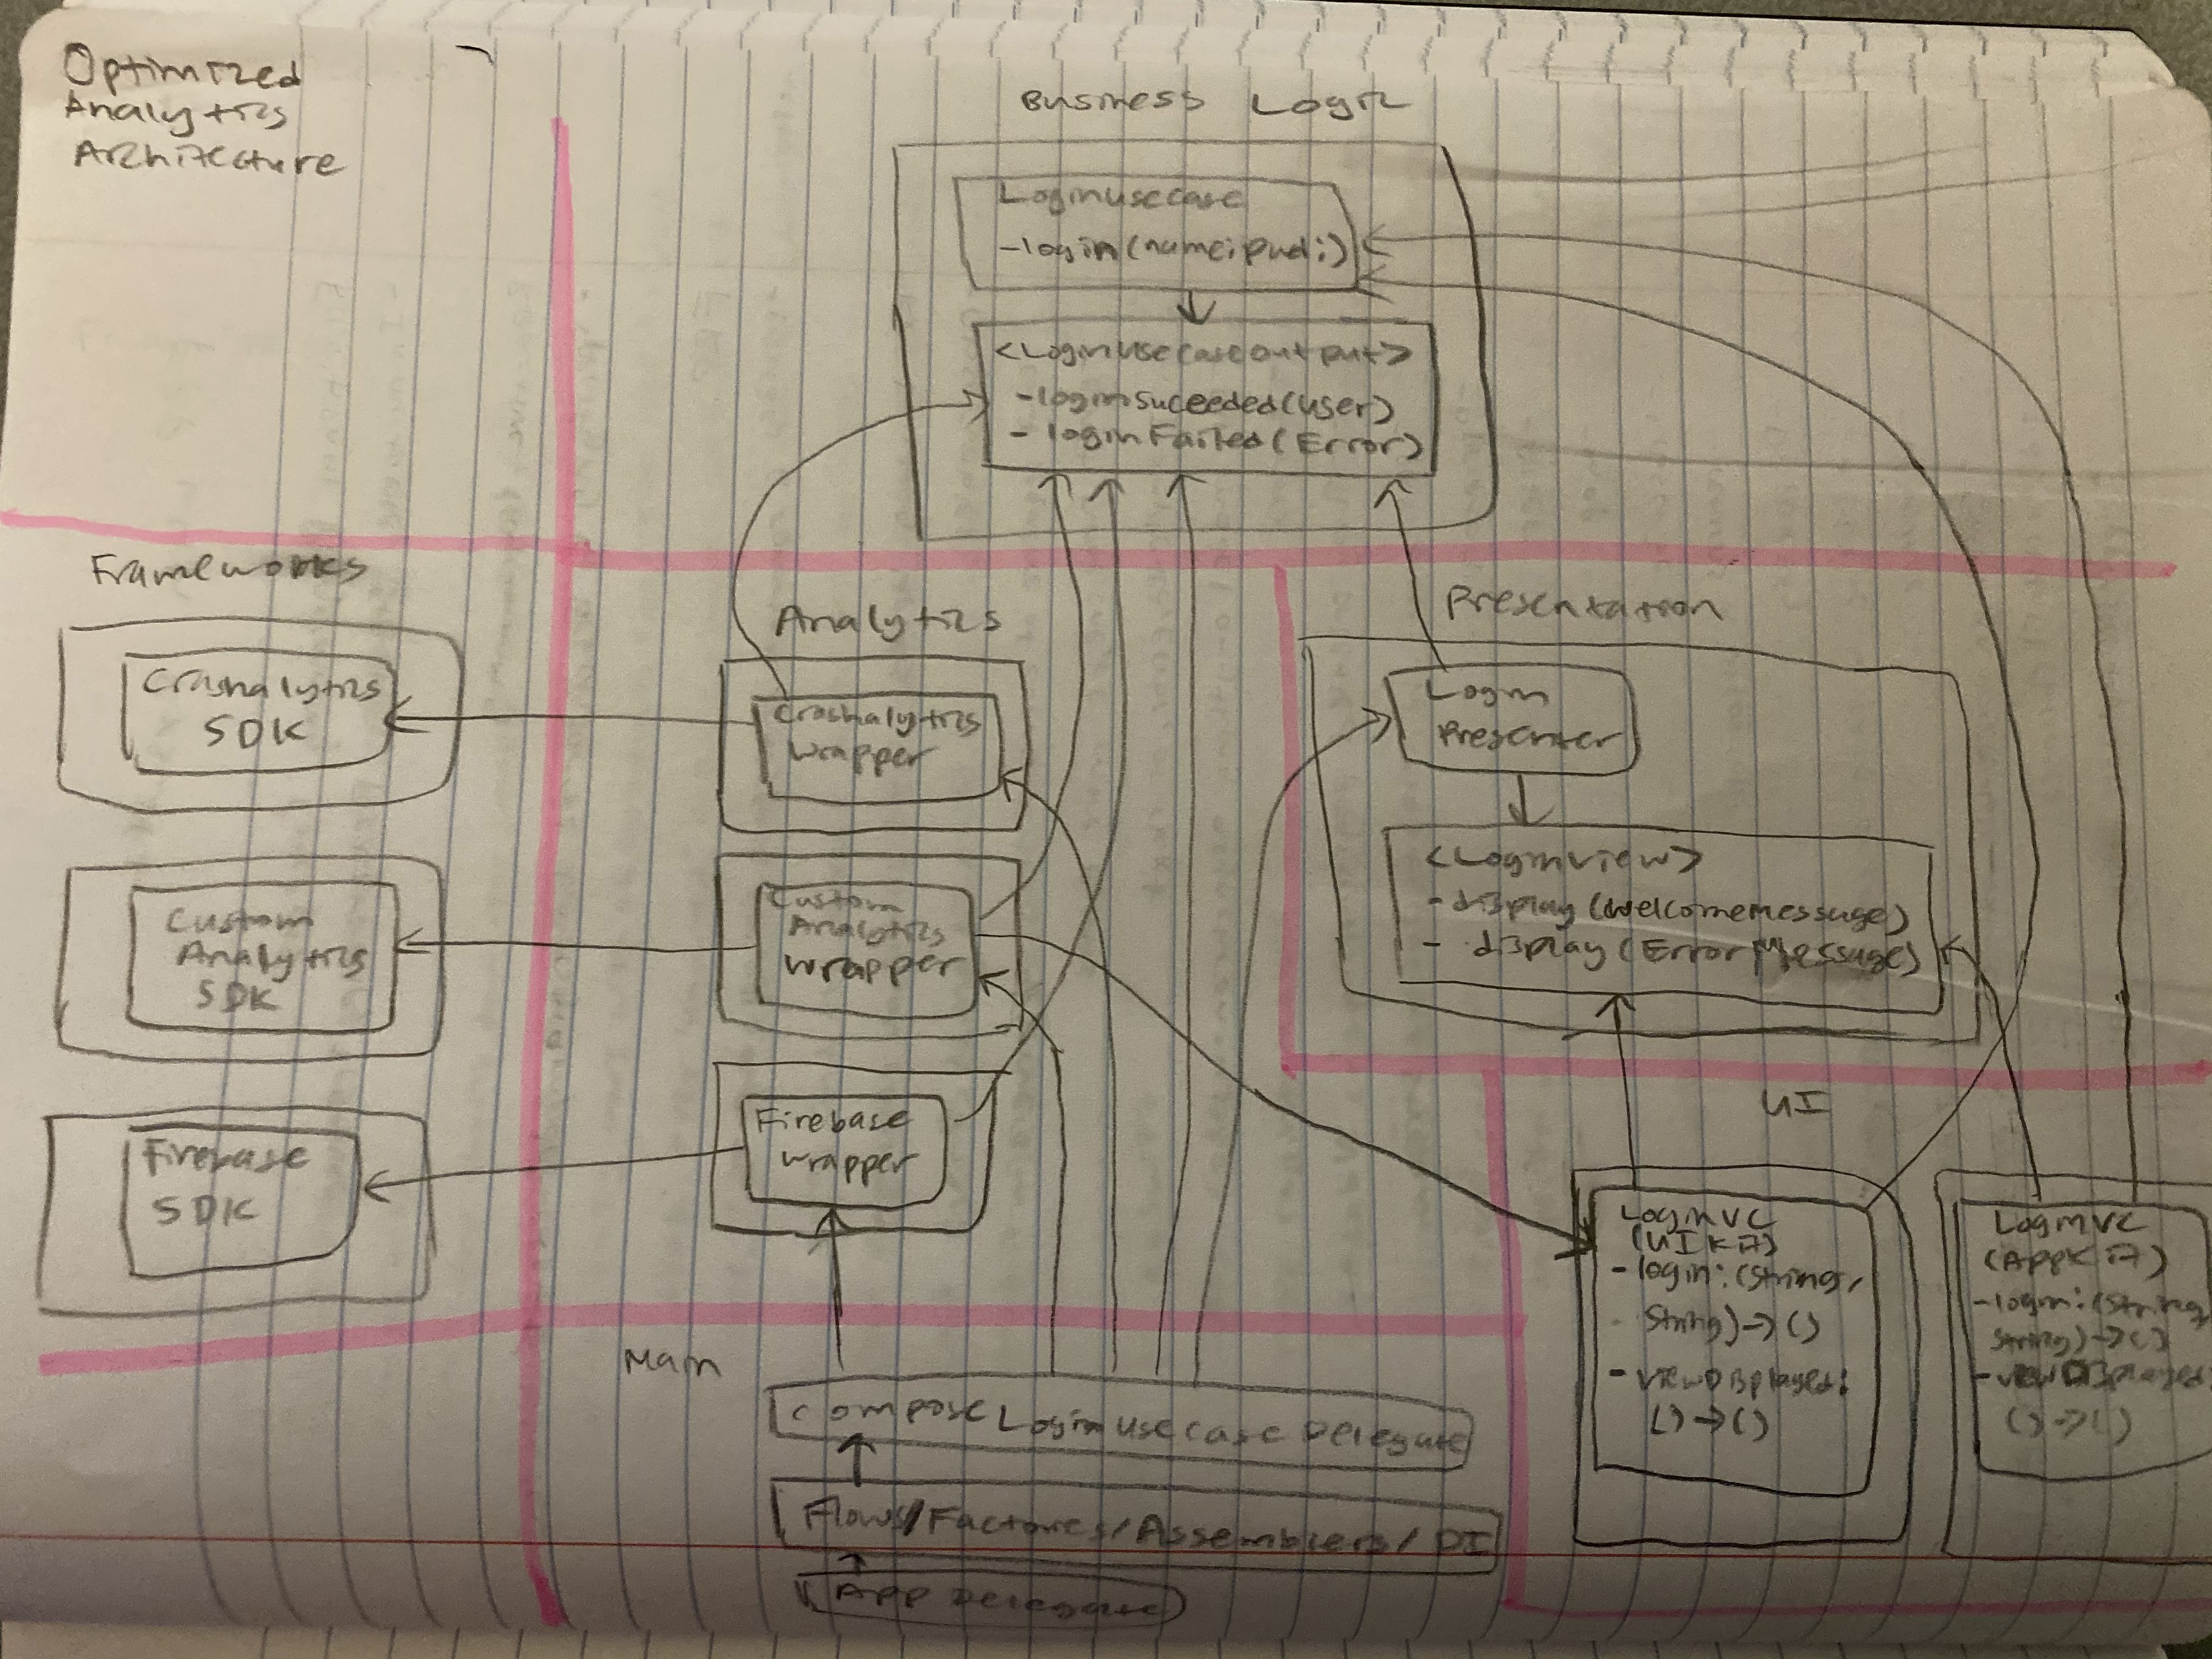 Optimized
Analytics
Architecture
Business Logic
LoginUseCase
-login(name:pwd:)
<LoginUseCaseOutput>
-loginSuceeded(User)
- loginFailed(Error)
Frameworks
Crashalytics
SDK
Custom
Analytics
SDK
Firebase
SDK
Analytics
Crashalytics
Wrapper
Custom
Analytics
Wrapper
Firebase
Wrapper
Presentation
Login
Presenter
<LoginView>
-display(WelcomeMessage)
- display(ErrorMessage)
UI
LoginVC
(UIKit)
-login:(String,
String)->()
-viewDisplayed:
()->()
LoginVC
(AppKit)
-login:(String,
String)->()
-viewDisplayed:
()->()
Main
ComposeLoginUseCaseDelegate
Flows/Factories/Assemblers/DI
App Delegate